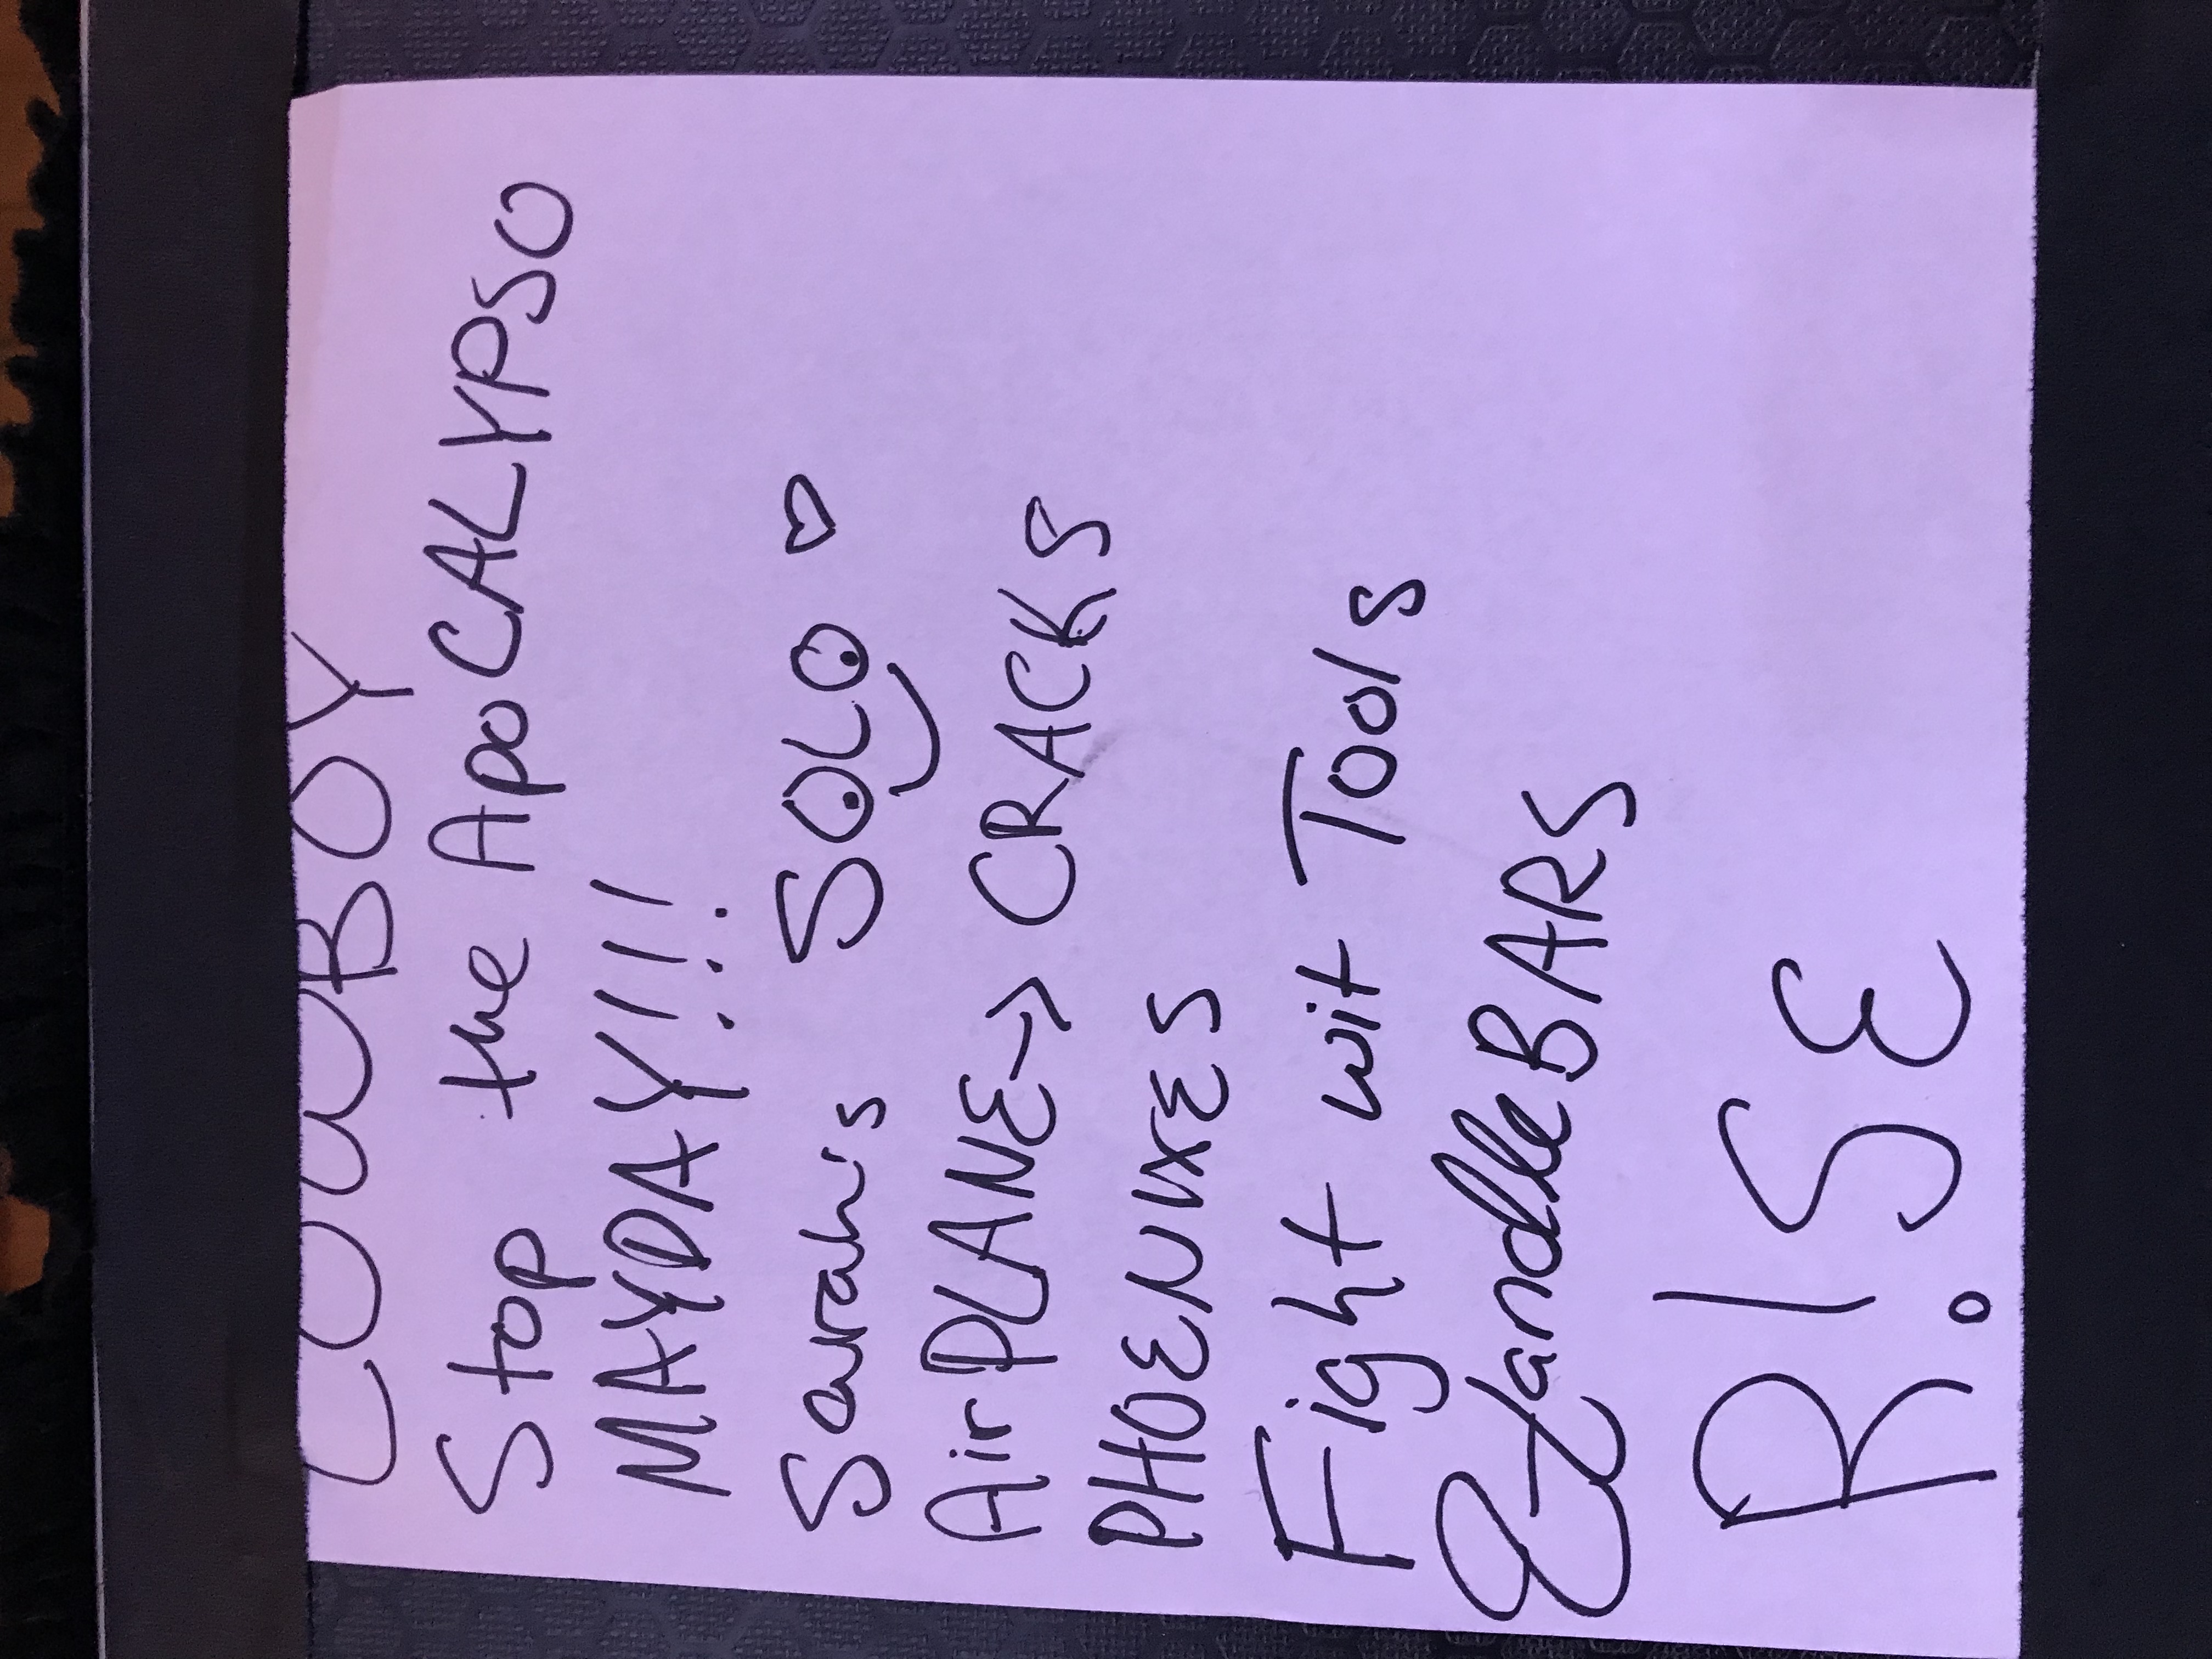 COWBOY
Stop the ApoCALYPSO
MAYDAY!!!
Sarah's SOLO ♡
AirPLANE → CRACKS
PHOENIXES
Fight wit Tools
HandleBARS
R!SE